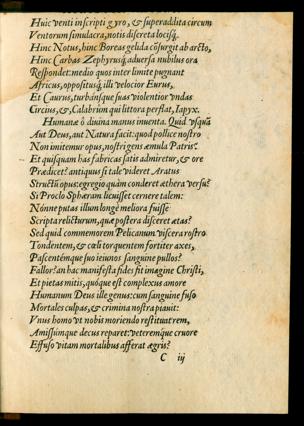 Huic venti inscripti gyro, & superaddita circum
Ventorum simulacra, notis discreta locisq́.
Hinc Notus, hinc Boreas gelida cōsurgit ab arcto,
Hinc Carbas Zephyrusq́, aduersa nubilus ora
Respondet: medio quos inter limite pugnant
Africus, oppositusq́, illi velocior Eurus,
Et Caurus, turbánsque suas violentior vndas
Circius, &, Calabrûm qui littora perflat, Iapyx.
Humanæ ô diuina manus inuenta. Quid vsquā
Aut Deus, aut Natura facit: quod pollice nostro
Non imitemur opus, nostri gens æmula Patris?
Et quisquam has fabricas satis admiretur, & ore
Prædicet? antiquus si tale videret Aratus
Structū opus: egregio quàm conderet æthera versu?
Si Proclo Sphæram licuisset cernere talem:
Nónne putas illum longè meliora fuisse
Scripta relicturum, quæ postera disceret ætas?
Sed quid commemorem Pelicanum viscera rostro
Tondentem, & cœli torquentem fortiter axes,
Pascentémque suo ieiunos sanguine pullos?
Fallor? an hac manifesta fides fit imagine Christi,
Et pietas mitis, quóque est complexus amore
Humanum Deus ille genus: cum sanguine fuso
Mortales culpas, & crimina nostra piauit:
Vnus homo vt nobis moriendo restituat rem,
Amissúmque decus reparet: veterémque cruore
Effuso vitam mortalibus afferat ægris?
C iij